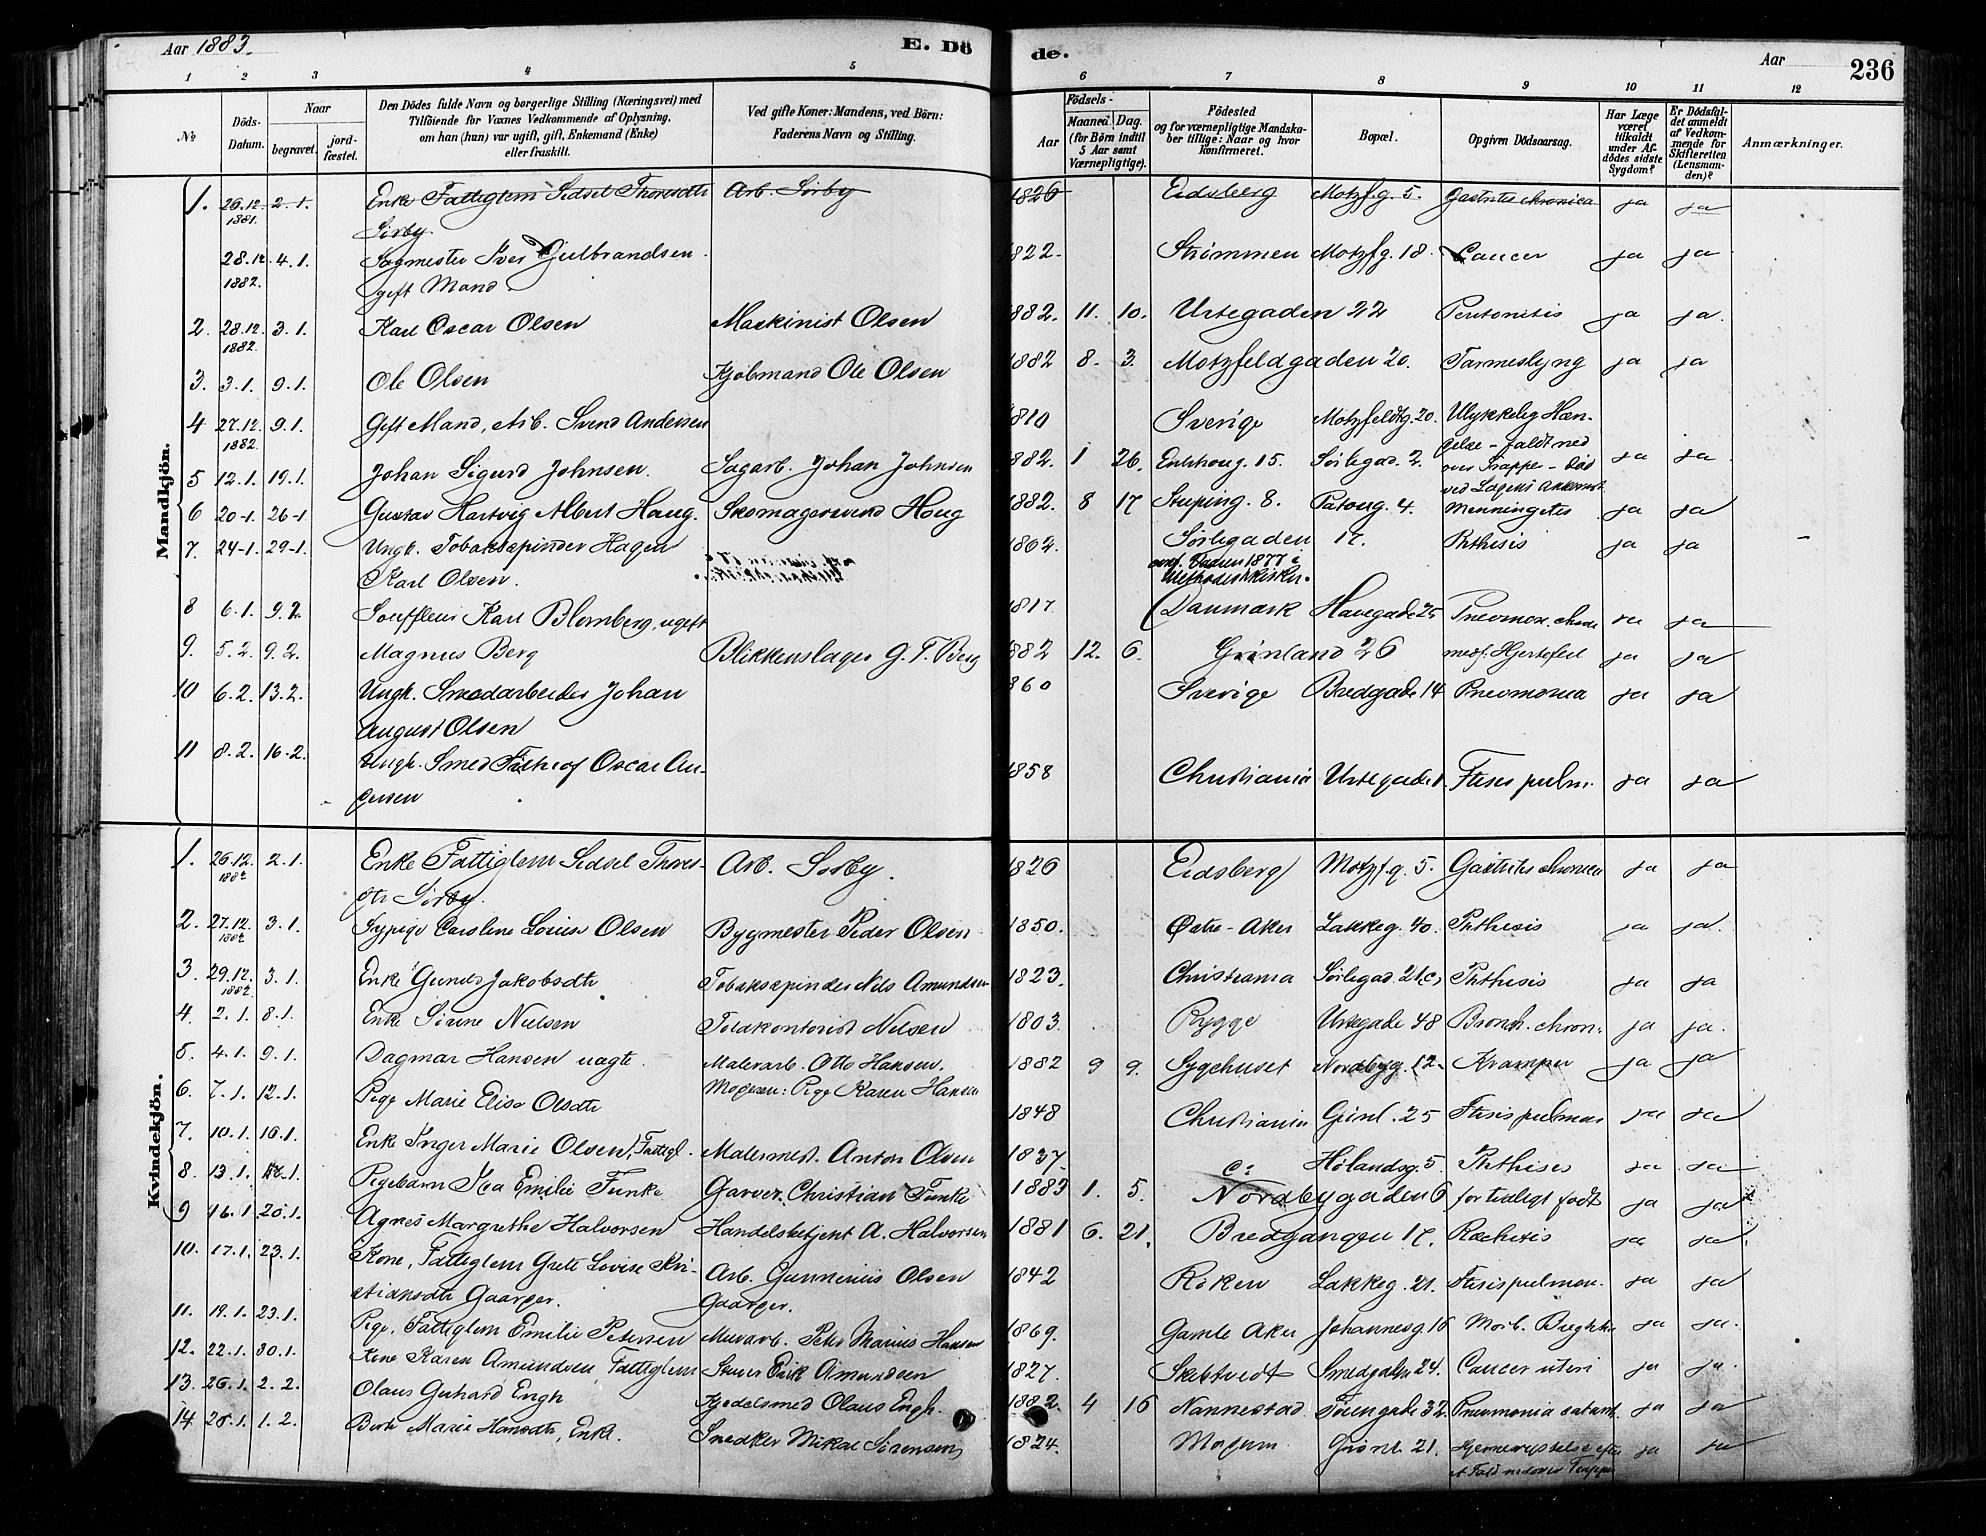 Aar 1883.
E. Dö
de.
Aar
236
1 2 3 4 5 6 7 8 9 10 11 12
No.
Döds-Datum.
Naar
begravet.
jord-fæstet.
Den Dödes fulde Navn og borgerlige Stilling (Næringsvei) med
Tilföiende for Voxnes Vedkommende af Oplysning,
om han (hun) var ugift, gift, Enkemand (Enke)
eller fraskilt.
Ved gifte Koner: Mandens, ved Börn:
Faderens Navn og Stilling.
Födsels-
Aar
Maaned. Dag.
(for Börn indtil
5 Aar samt
Værnepligtige).
Födested
og for værnepligtige Mandska-
ber tillige: Naar og hvor
konfirmeret.
Bopæl.
Opgiven Dödsaarsag.
Har Læge
været
tilkaldt
under Af-
dödes sidste
Sygdom?
Er Dödsfal-
det anmeldt
af Vedkom-
mende for
Skifteretten
(Lensman-
den)?
Anmærkninger.
Mandkjön.
1. 26.12. 1881. 2.1. Enke Fattiglem Sidsel Thoresdtr Arb. Sörby 1826 Eidsberg Motzf.g. 5. Gastrites chronica ja ja
Sörby
28.12 1882. 4.1. Sagmester Iver Gulbrandsen 1822. Strømmen Motzf.g. 18. Cancer ja ja
gift Mand
2. 28.12. 1882. 3.1. Karl Oscar Olsen Maskinist Olsen 1882. 11. 10. Urtegaden 22 Peritonitis ja ja.
3. 3.1. 9.1. Ole Olsen Kjøbmand Ole Olsen 1882 8. 3. Motzfeldgaden 20. Tarmeslyng ja ja
4 27.12. 1882. 9.1. Gift Mand, Arb. Svend Andersen 1810 Sverige Motzfeldtg. 20. Ulykkelig Hæn-
delse - faldt ned
over Trappe - död
ved Lægens Ankomst ja ja
5 12.1. 19.1. Johan Sigurd Johnsen. Sagarb. Johan Johnsen 1882. 1 26. Enerhoug. 15. Sörlegad. 2.
6 20-1. 26-1 Gustav Hartvig Albert Haug. Skomagersvend Haug 1882. 8 17 Stuping. 8. Patoug. 4. Menningetes ja ja
7. 24-1. 29-1. Ungk. Tobakspinder Hagen 1862. Sörlegaden 17. Phthisis ja ja
Karl Olsen. 1877 i
8 6.1. 9.2 Souffleur Karl Blomberg, ugift 1817. Danmark Havegade 25 Pneumon. ja
9. 5.2. 9.2. Magnus Berg Blikkenslager G. T. Berg 1882 12. 6. Grönland 26 medf. Hjertefeil ja ja
10 6.2. 13.2. Ungk. Smedarbeider Johan 1860 Sverige Bredgade 14 Pneumonia ja ja
August Olsen
11 8.2. 16.2. Ungk. Smed Oscar An- 1858 Christiania Urtegade 1. Ftisis pulm. ja ja
dersen
Kvindekjön.
1. 26.12. 1882 2.1. Enke Fattiglem Sidsel Thores- Arb. Sörby. 1826 Eidsberg Motzf.g. 5. Gastrites chronica ja ja
dtr Sörby.
2. 27.12. 1882 3.1. Sypige Caroline Lovise Olsen Bygmester Peder Olsen 1850. Østre-Aker Lakkeg. 40. Phthisis ja ja.
3. 29.12. 1882 3.1. Enke Gunild Jakobsdtr Tobakspinder Nils Amundsen 1823. Christiania Sörlegad. 21c, Phthisis ja ja
4. 2.1. 8.1. Enke Sörine Nielsen Toldkontorist Nelsen 1803. Rygge Urtegade 48 Bronch. chron. ja ja.
5. 4.1. 9.1. Dagmar Hansen uægte. Malerarb. Otto Hansen. 1882 9 9. Sygehuset Nordbyg. 12. Kramper ja ja
Moderen: Pige Karen Hansen
6. 7.1. 12.1. Pige Marie Elise Olsdtr 1848 Christiania Grönl. 25 Ftisis pulmon ja ja
7. 10.1. 16.1. Enke Inger Marie Olsen, Fattigl. Malermest. Anton Olsen 1837. Hølandsg. 5. Phthises ja ja
8. 13.1. Pigebarn Ica Emilie Funke Garver Christian Funke 1883 1. 5. Nordbygaden 6 for tidligt født ja ja
9 16.1 20.1. Agnes Margrethe Halvorsen Handelsbetjent A. Halvorsen 1881 6. 21. Bredgangen 17. Rachitis ja ja
10. 17.1. 23.1. Kone, Fattiglem Grete Lovise Kri- Arb. Gunnerius Olsen 1842 Röken Lakkeg. 21. Ftisis pulmon. ja ja
stiansdtr Gaarder. Gaarder.
11. 19.1. 23.1. Pige, Fattiglem Emilie Petersen Murarb. Peter Marius Hansen 1869. Gamle Aker Johannesg. 16 Morb. ja ja.
12. 22.1. 30.1. Kone Karen Amundsen, Fattiglem Stuer Erik Amundsen 1827. Skibtvedt Smedgaden 24. Cancer uteri ja ja.
13. 26.1. 2.2. Olaus Gerhard Engh Kjedelsmed Olaus Engh. 1882. 4 16 Nannestad Tøiengade 32. Pneumonia catarrh ja ja
14 28.1. 1.2. Berte Marie Hansdtr, Enke. Snedker Mikal Sörensen 1824. Modum Grönl. 21. Hjernerystelse efter ja ja
et Fald nedover Trappe